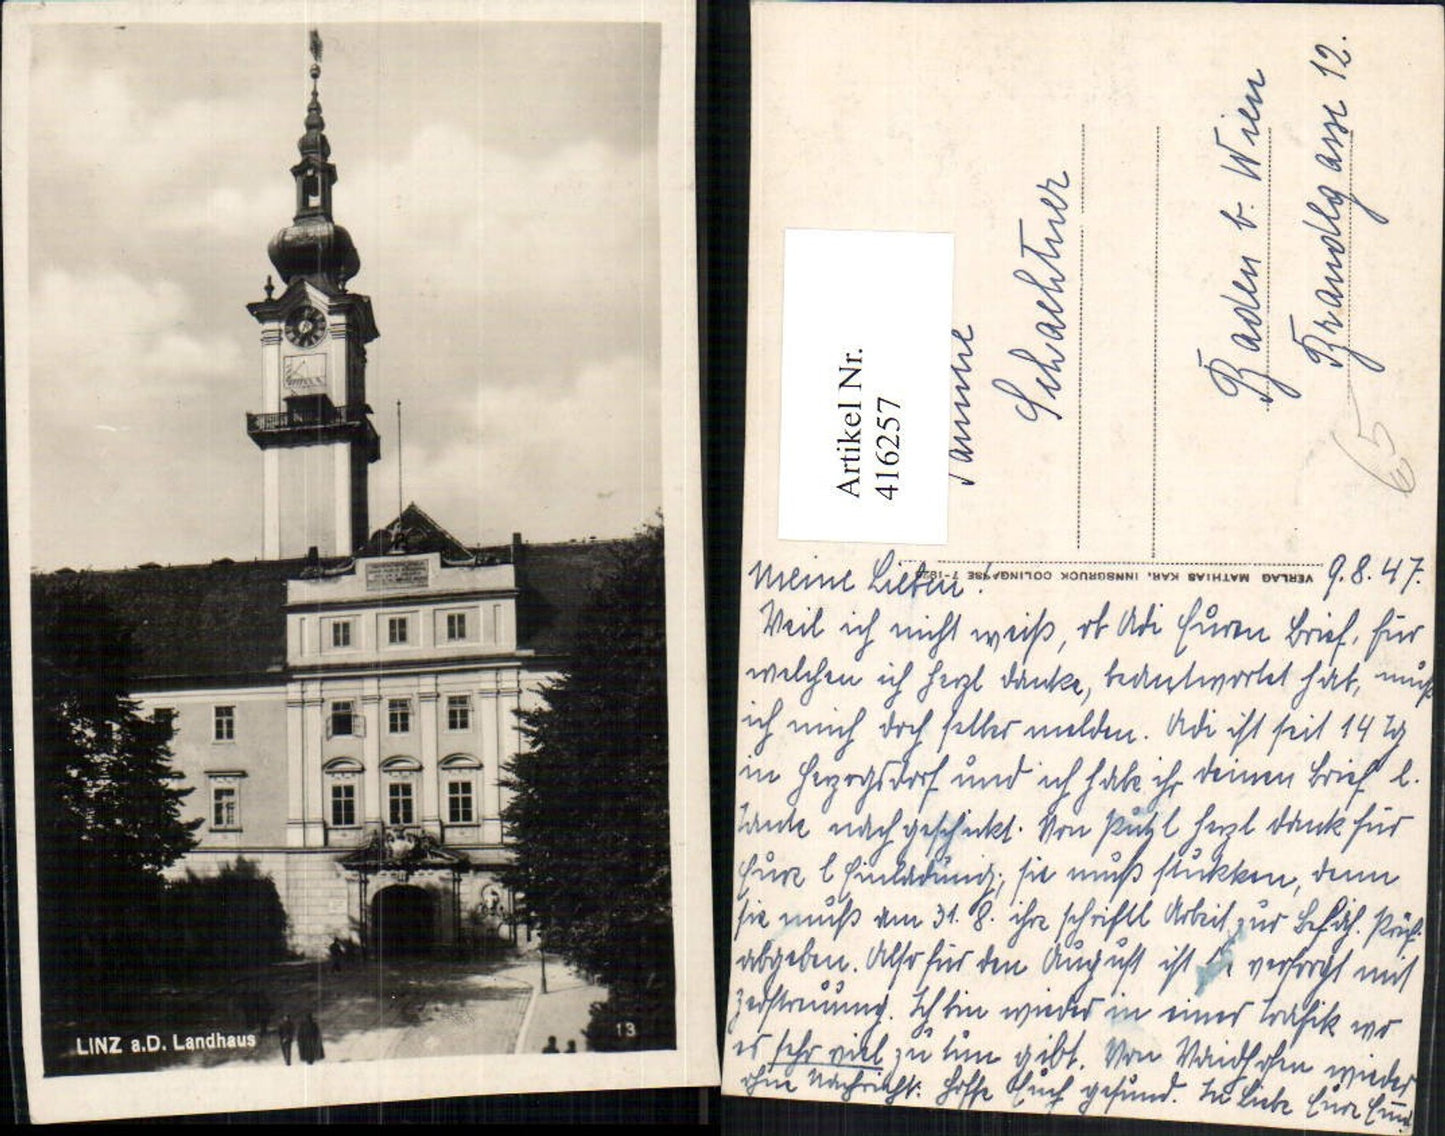 LINZ a.D. Landhaus
13
Artikel Nr.
416257
Schachtner
Baden b. Wien
Brandlgasse 12.
65
VERLAG MATHIAS KAR, INNSBRUCK COLINGASSE 7-192
9.8.47.
Meine Lieben!
Weil ich nicht weiß, ob Adi Euren Brief, für
welchen ich herzl danke, beantwortet hat, muß
ich mich doch selber melden. Adi ist seit 14 Tg
in Herzogsdorf und ich habe ihr deinen Brief l.
Tante nachgeschickt. Von Putzl herzl dank für
Eure l Einladung; sie muß stukken, denn
sie muß am 31. 8. ihre schriftl Arbeit zur Befäh. Prüf.
abgeben. Also für den August ist versorgt mit
Zerstreuung. Ich bin wieder in einer Trafik wo
es sehr viel zu tun gibt. Von Waidhofen wieder
ohne Nachricht. Hoffe Euch gesund. In Liebe Eure